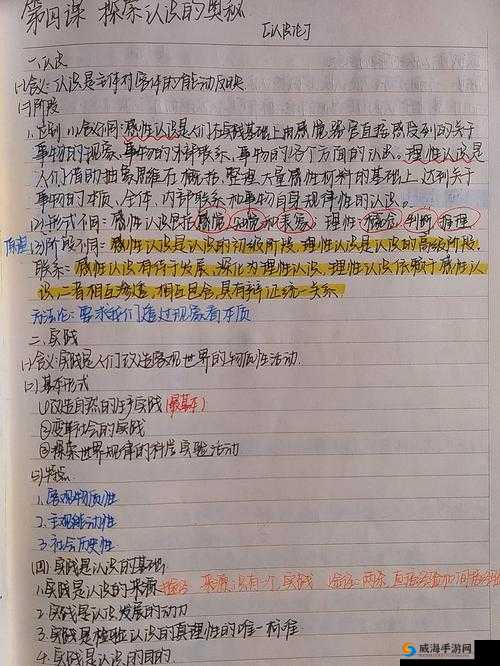 第四课 探索认识的奥秘
【认识论】
一.认识
(一)含义:认识是主体对客体的能动反映.
(二)阶段
1.区别:(1)含义不同:感性认识是人们在实践基础上由感觉器官直接感受到的关于
事物的现象、事物的外部联系、事物的各个方面的认识。理性认识是
人们借助抽象思维在概括、整理大量感性材料的基础上,达到关于
事物的本质、全体、内部联系和事物自身规律性的认识。
(2)形式不同:感性认识包括感觉 知觉 和表象 理性:概念 判断 推理
(3)阶段不同:感性认识是认识的初级阶段,理性认识是认识的高级阶段.
联系:感性认识有待于发展、深化为理性认识,理性认识依赖于感性认
识,二者相互渗透,相互包含,具有辩证统一关系
方法论:要求我们透过现象看本质
二.实践
(一)含义:实践是人们改造客观世界的物质性活动.
(二)基本形式
①改造自然的生产实践(最基本)
②变革社会的实践
③探索世界规律的科学实验活动
(三)特点
1.客观物质性
2.主观能动性
3.社会历史性
(四)实践是认识的基础
1.实践是认识的来源 来源只有一个实践 两条 直接经验和间接经验
2.实践是认识发展的动力
3.实践是检验认识的真理性的唯一标准
4.实践是认识的目的
威海手游网